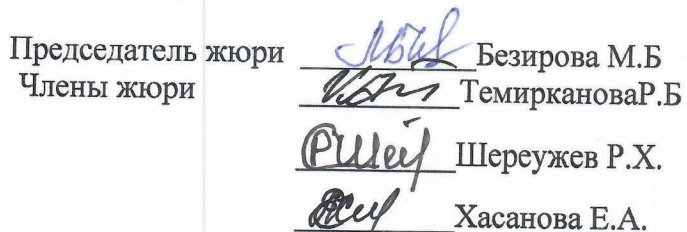 Председатель жюри Безирова М.Б
Члены жюри ТемиркановаР.Б
Шереужев Р.Х.
Хасанова Е.А.